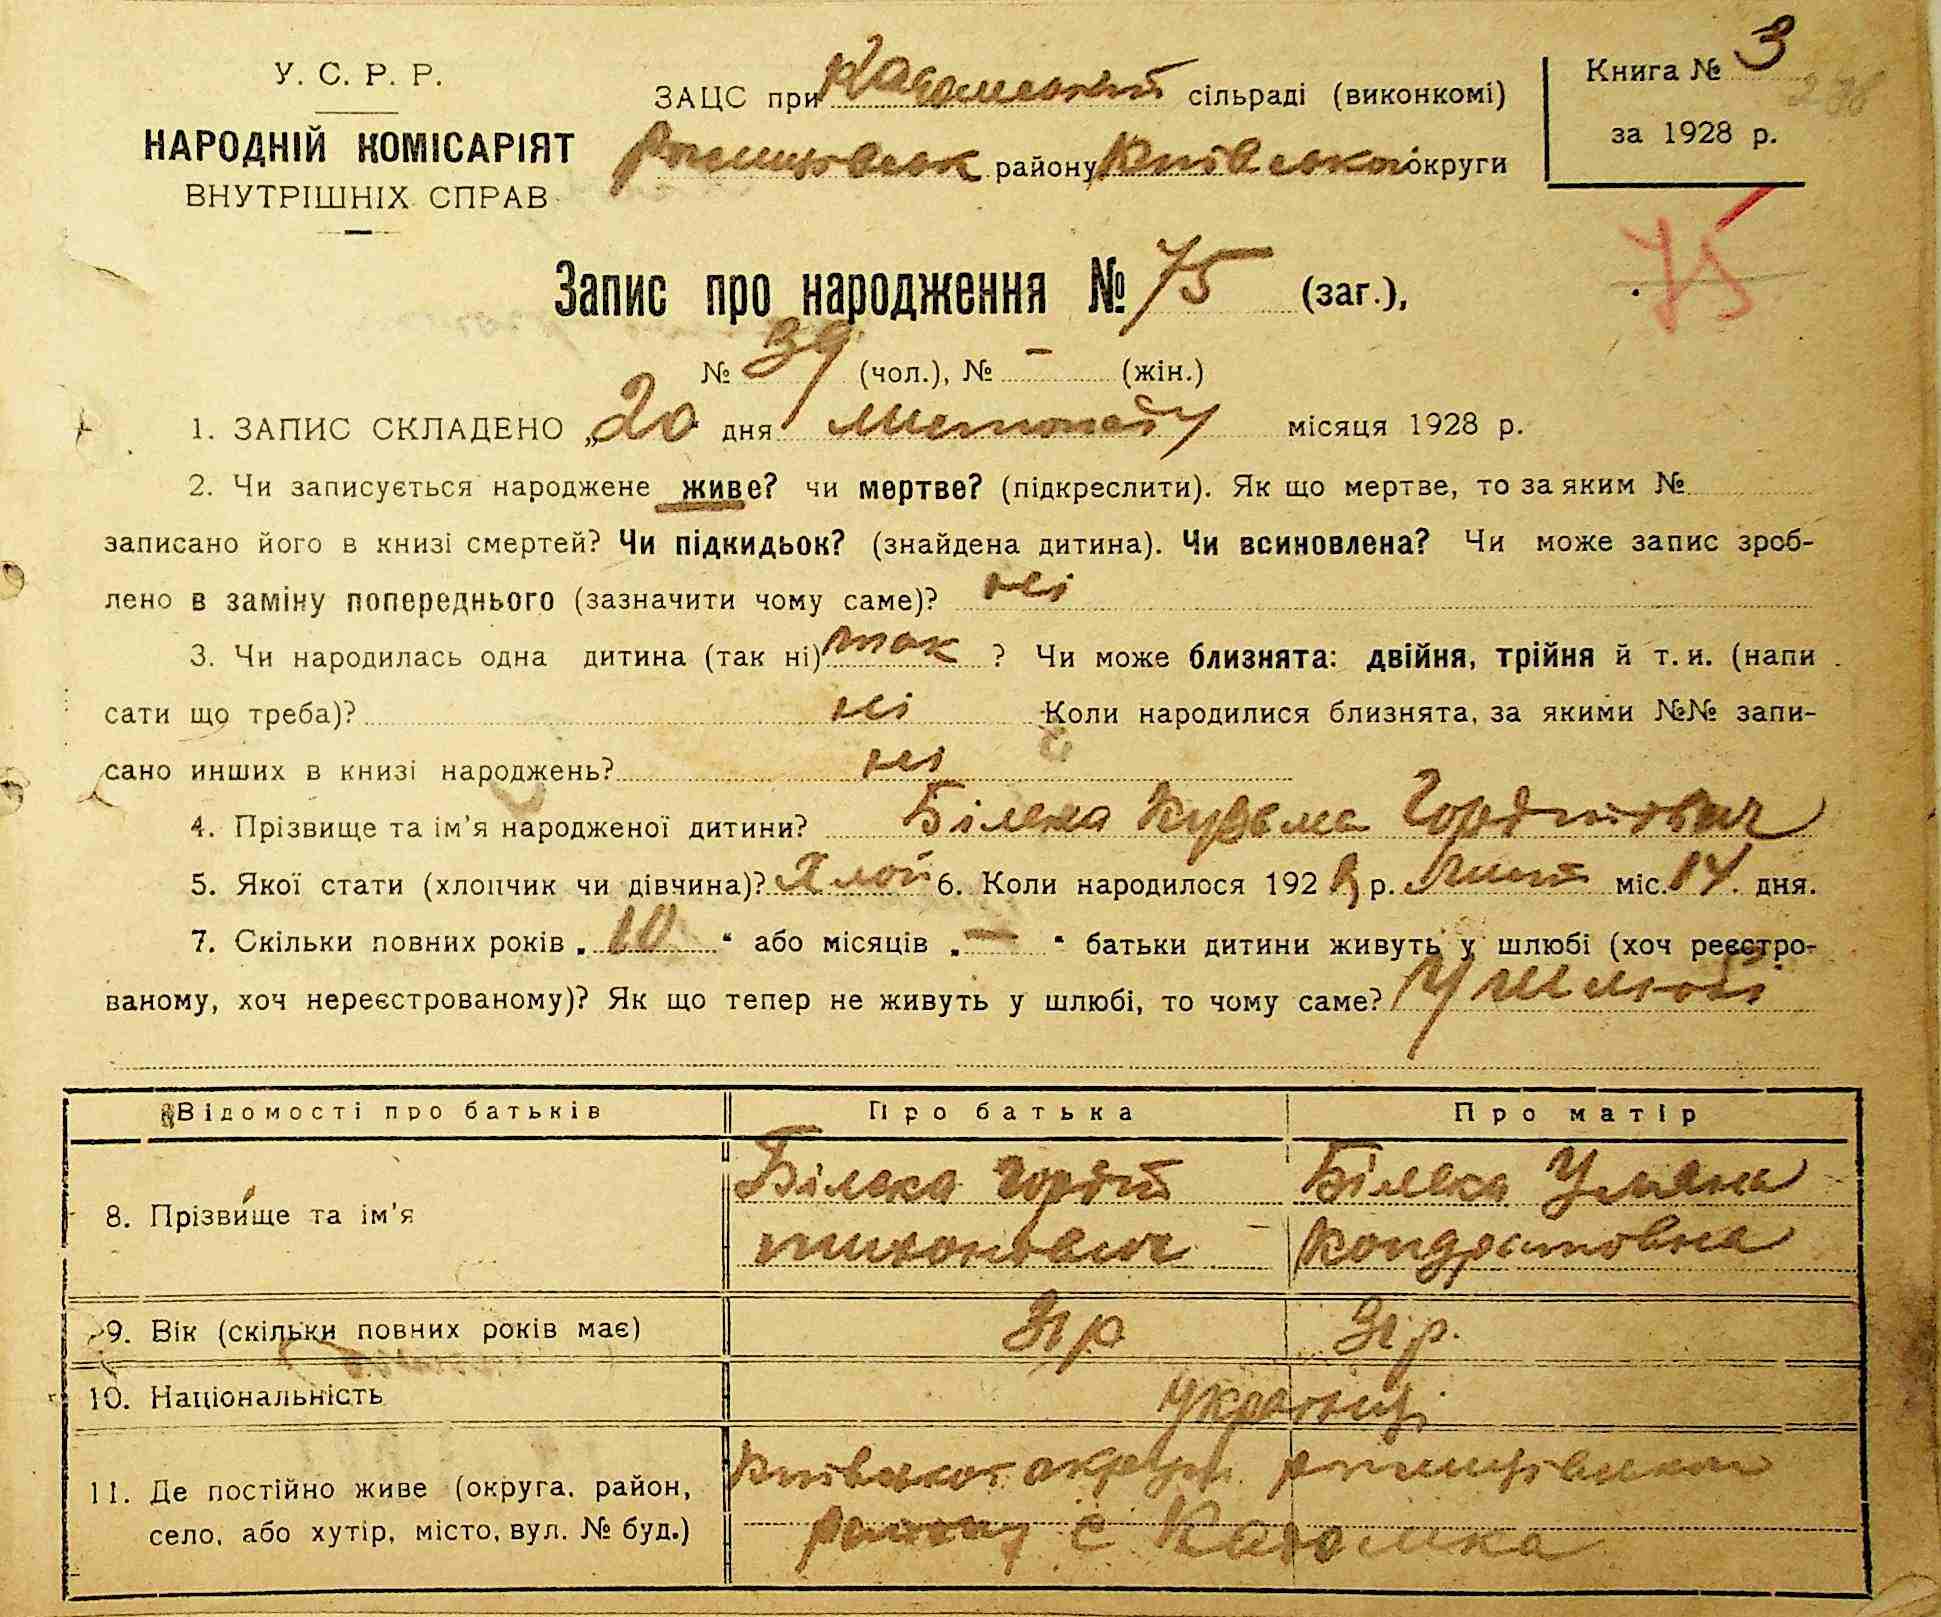 У. С. Р. Р.
НАРОДНІЙ КОМІСАРІЯТ
ВНУТРІШНІХ СПРАВ
ЗАЦС при сільраді (виконкомі)
району Київської округи
Книга № 3
за 1928 р.
75
Запис про народження № 75 (заг.),
№ 39 (чол.), № – (жін.)
1. ЗАПИС СКЛАДЕНО „20“ дня листопаду місяця 1928 р.
2. Чи записується народжене живе? чи мертве? (підкреслити). Як що мертве, то за яким №
записано його в книзі смертей? Чи підкидьок? (знайдена дитина). Чи всиновлена? Чи може запис зроб-
лено в заміну попереднього (зазначити чому саме)? ні
3. Чи народилась одна дитина (так ні) так ? Чи може близнята: двійня, трійня й т. и. (напи
сати що треба)? ні Коли народилися близнята, за якими №№ запи-
сано инших в книзі народжень? ні
4. Прізвище та ім'я народженої дитини? Білека Кузьма Гордійович
5. Якої стати (хлопчик чи дівчина)? Хлоп 6. Коли народилося 1928 р. Лист міс. 14. дня.
7. Скільки повних років „10“ або місяців „—“ батьки дитини живуть у шлюбі (хоч реєстро-
ваному, хоч нереєстрованому)? Як що тепер не живуть у шлюбі, то чому саме? У шлюбі
Відомості про батьків Про батька Про матір
8. Прізвище та ім'я
Білека Гордій Білека Уляна
тихонович Кондратовна
9. Вік (скільки повних років має) 31 р 31 р.
10. Національність Українці
11. Де постійно живе (округа, район,
село, або хутір, місто, вул. № буд.)
Київської округи
району с